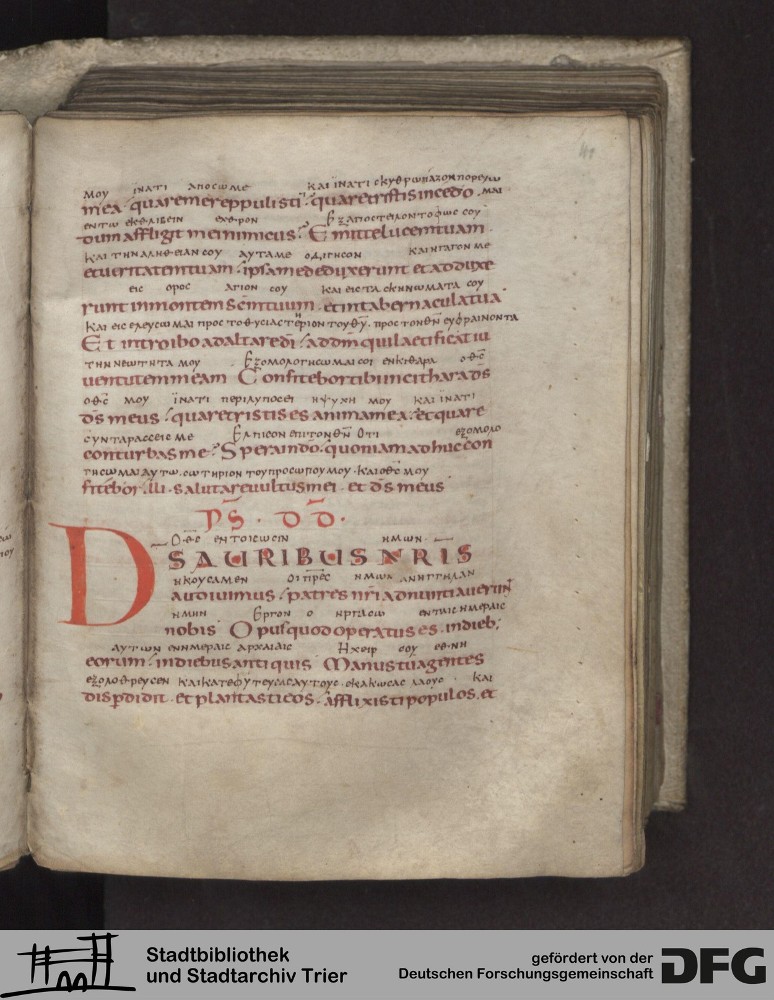 41
ΜΟΥ ΪΝΑΤΙ ΑΠΟCΩΜΕ ΚΑΙ ΪΝΑΤΙ CΚΥΘΡΩΠΑΖΟΝ ΠΟΡΕΥΩ
mea · quare me reppulisti · quare tristis incedo · ΜΑΙ
ΕΝ ΤΩ ΕΚΘΛΙΒΕΙΝ ΕΧΘΡΟΝ ΕΞΑΠΟCΤΕΙΛΟΝ ΤΟ ΦΩC CΟΥ
dum affligit me inimicus? Emitte lucem tuam ·
ΚΑΙ ΤΗΝ ΑΛΗΘΕΙΑΝ CΟΥ ΑΥΤΑ ΜΕ ΟΔΙΓΗCΟΝ ΚΑΙ ΗΓΑΓΟΝ ΜΕ
et veritatem tuam · ipsa me deduxerunt et adduxe
ΕΙC ΟΡΟC ΑΓΙΟΝ CΟΥ ΚΑΙ ΕΙC ΤΑ CΚΗΝΩΜΑΤΑ CΟΥ
runt in montem scm tuum · et in tabernacula tua
ΚΑΙ ΕΙCΕΛΕΥCΩΜΑΙ ΠΡΟC ΤΟ ΘΥCΙΑCΤΕΡΙΟΝ ΤΟΥ ΘΥ · ΠΡΟC ΤΟΝ ΘΝ ΕΥΦΡΑΙΝΟΝΤΑ
Et introibo ad altare di · ad dm qui laetificat iu
ΤΗΝ ΝΕΩΤΗΤΑ ΜΟΥ ΕΞΟΜΟΛΟΓΗCΩΜΑΙ CΟΙ ΕΝ ΚΙΘΑΡΑ Ο ΘC
ventutem meam Confitebor tibi in cithara ds
Ο ΘC ΜΟΥ ΪΝΑΤΙ ΠΕΡΙΛΥΠΟC ΕΙ Η ΨΥΧΗ ΜΟΥ ΚΑΙ ΪΝΑΤΙ
ds meus · quare tristis es anima mea · et quare
CΥΝΤΑΡΑCCΕΙC ΜΕ ΕΛΠΙCΟΝ ΕΠΙ ΤΟΝ ΘΝ ΟΤΙ ΕΞΟΜΟΛΟ
conturbas me? Spera in do · quoniam adhuc con
ΓΗCΩΜΑΙ ΑΥΤΩ · CΩΤΗΡΙΟΝ ΤΟΥ ΠΡΟCΩΠΟΥ ΜΟΥ · ΚΑΙ Ο ΘC ΜΟΥ
fitebor illi · salutare vultus mei · et ds meus
PS · DD ·
Ο ΘC ΕΝ ΤΟΙC ΩCΙΝ ΗΜΩΝ
DS AURIBUS NRIS
ΗΚΟΥCΑΜΕΝ ΟΙ ΠΡΕC ΗΜΩΝ ΑΝΗΓΓΗΛΑΝ
audivimus · patres nri adnuntiaverunt
ΗΜΙΝ ΕΡΓΟΝ Ο ΗΡΓΑCΩ ΕΝ ΤΑΙC ΗΜΕΡΑΙC
nobis Opus quod operatus es · in dieb;
ΑΥΤΩΝ ΕΝ ΗΜΕΡΑΙC ΑΡΧΑΙΑΙC Η ΧΕΙΡ CΟΥ ΕΘΝΗ
eorum · in diebus antiquis Manus tua gentes
ΕΞΟΛΟΘΡΕΥCΕΝ ΚΑΙ ΚΑΤΕΦΥΤΕΥCΑC ΑΥΤΟΥC · ΕΚΑΚΩCΑC ΛΑΟΥC · ΚΑΙ
disperdidit · et plantasti eos · afflixisti populos · et
Stadtbibliothek
und Stadtarchiv Trier
gefördert von der
Deutschen Forschungsgemeinschaft
DFG